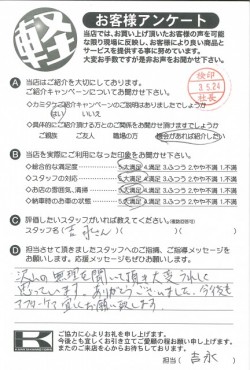 軽
お客様アンケート
当店では、お買い上げ頂いたお客様の声を可能
な限り現場に反映し、お客様により良い商品と
サービスを提供する事に努めています。
大変お手数ですが是非お声をお聞かせ下さい。
検印
3.5.24
社長
A 当店はご紹介を大切にしております。
ご紹介キャンペーンについてお聞かせ下さい。
◇カミタケご紹介キャンペーンのご説明はありましたでしょうか
はい いいえ
◇具体的にご紹介頂ける方とのご関係をお聞かせ頂けますでしょうか
ご親族 ご友人 職場の方 機会があれば紹介したい
B 当店を実際にご利用になった印象をお聞かせ下さい。
◇総合的な満足度 5.大満足 4.満足 3.ふつう 2.やや不満 1.不満
◇スタッフの対応 5.大満足 4.満足 3.ふつう 2.やや不満 1.不満
◇お店の雰囲気、清掃 5.大満足 4.満足 3.ふつう 2.やや不満 1.不満
◇納車時のお車の状態 5.大満足 4.満足 3.ふつう 2.やや不満 1.不満
C 評価したいスタッフがいれば教えてください。(複数回答可)
スタッフ名( 吉永さん )( )
D 担当させて頂きましたスタッフへのご指摘、ご指導メッセージを
お願いします。応援メッセージもぜひお願いします。
沢山の無理を聞いて頂き大変うれしく
思っています。ありがとうございました。今後も
アフターケア宜しくお願い致します。
K
ご協力に心よりお礼を申し上げます。
今後とも宜しくお引き立てご愛顧の程お願い申し上げます。
またのご来店を心からお待ちしております。
担当( 吉永 )